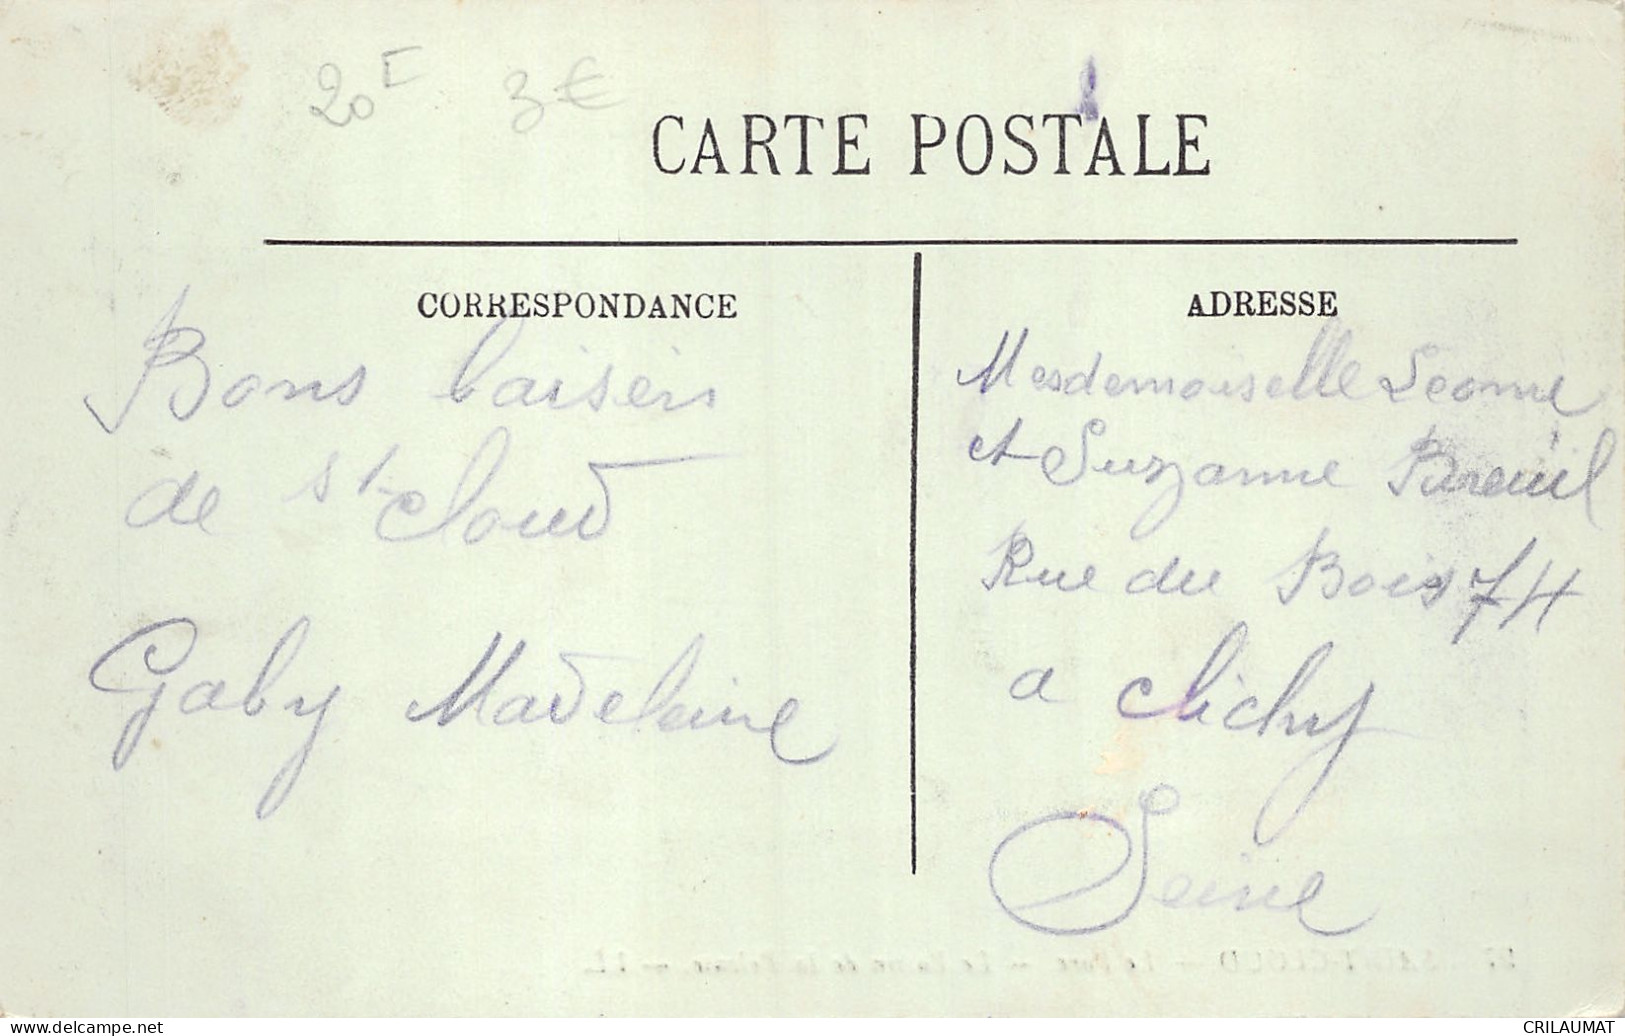 20F 3€
CARTE POSTALE
CORRESPONDANCE
Bons baisers
de St-Cloud
Gaby Madeleine
ADRESSE
Mesdemoiselle Leonne
et Suzanne Breuil
Rue du Bois 74
a Clichy
Seine
www.delcampe.net
CRILAUMAT